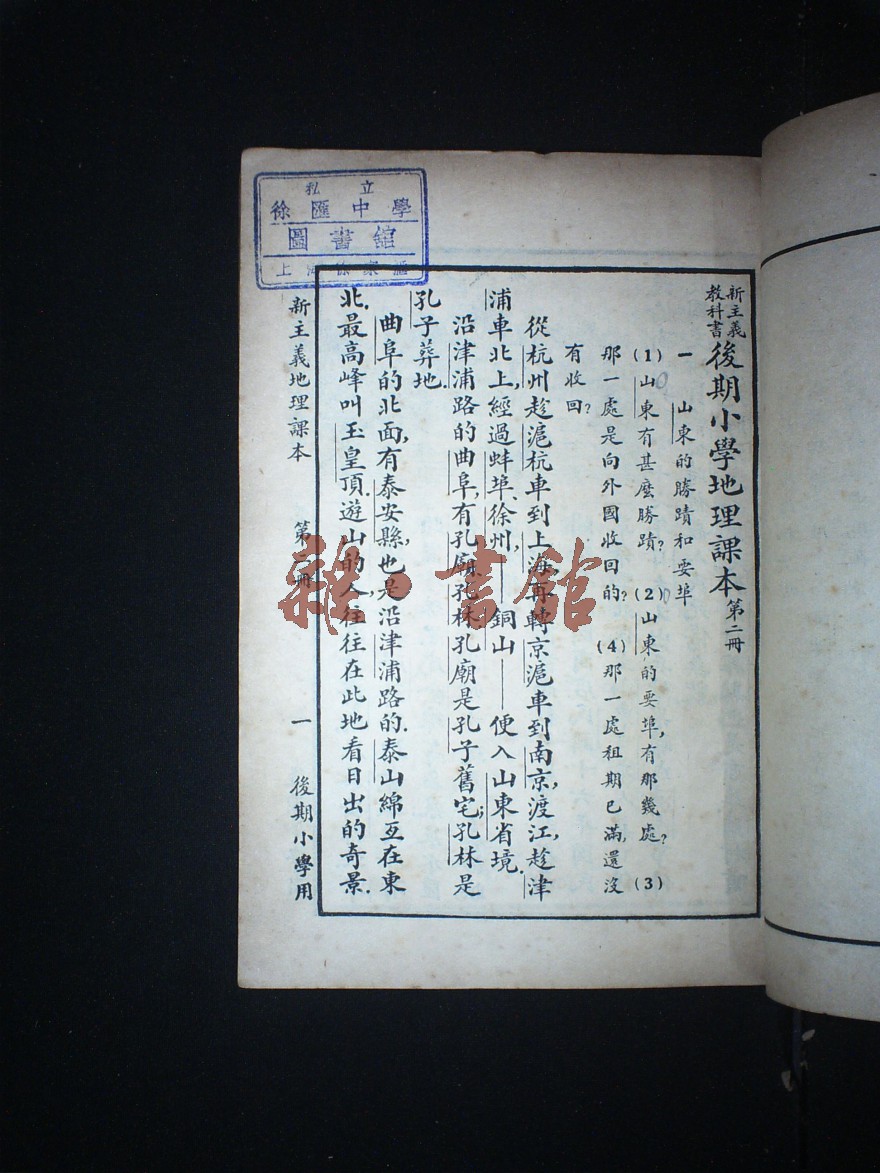 私立
徐匯中學
圖書館
上海徐家匯
新主義教科書 後期小學地理課本 第二冊
一 山東的勝蹟和要埠
(1)山東有甚麼勝蹟？(2)山東的要埠，有那幾處？(3)
那一處是向外國收回的？(4)那一處租期已滿，還沒
有收回？
從杭州趁滬杭車到上海，再轉京滬車到南京，渡江，趁津
浦車北上，經過蚌埠、徐州，——銅山——便入山東省境．
沿津浦路的曲阜，有孔廟、孔林．孔廟是孔子舊宅；孔林是
孔子葬地．
曲阜的北面，有泰安縣，也是沿津浦路的．泰山綿亙在東
北．最高峰叫玉皇頂．遊山的人，往往在此地看日出的奇景．
新主義地理課本 第二冊 一 後期小學用
雜·書館